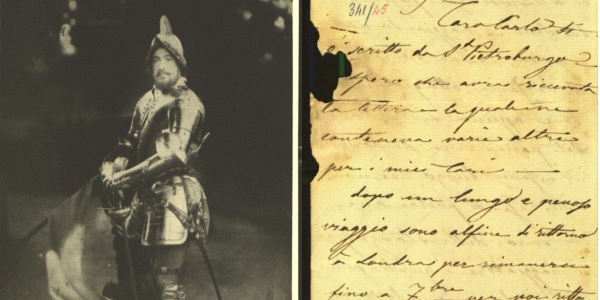 341/45
Caro Carlo ti
scritto da St Pietroburgo
spero che avrai ricevuta
la lettera la quale ne
conteneva varie altre
per i miei Cari —
dopo un lungo e penoso
viaggio sono alfine di ritorno
à Londra per rimanervi
fino a 7bre per poi